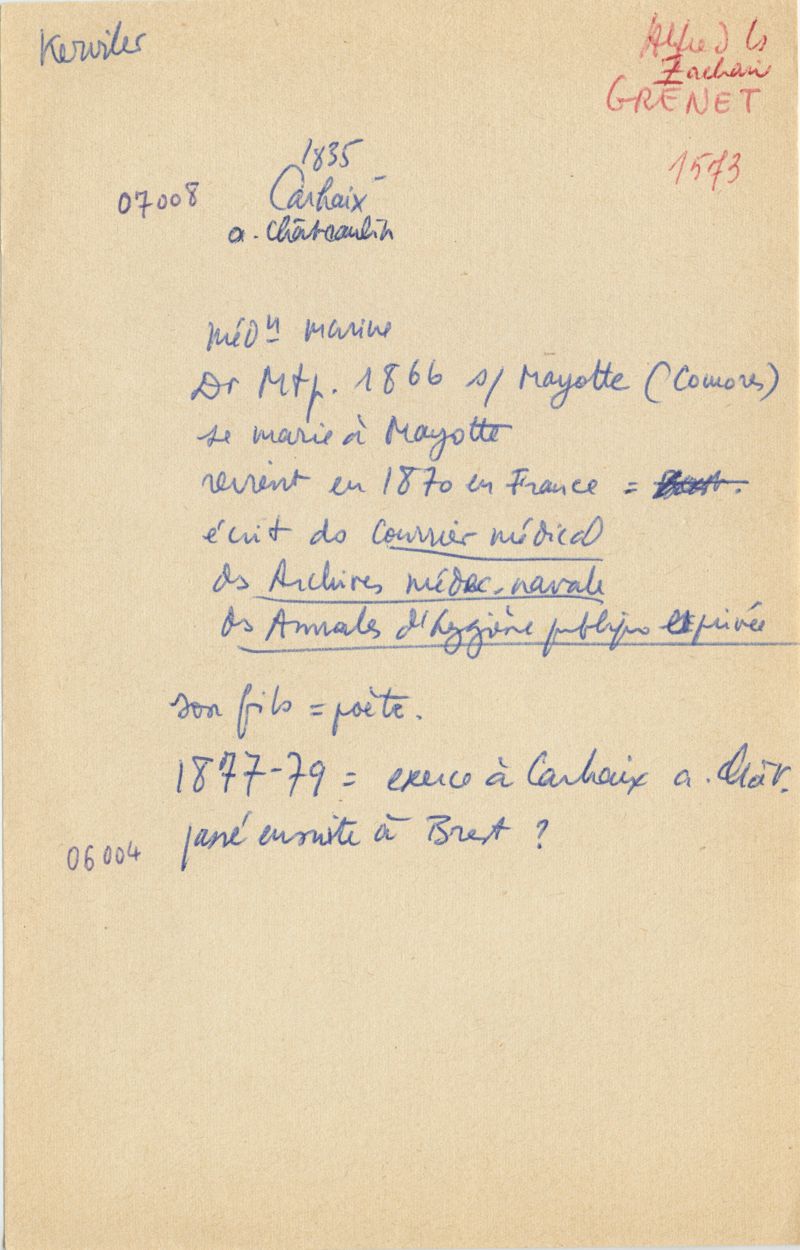 Kerviler
Alfred Ls
Zacharie
GRENET
1573
1835
07008 Carhaix
a. Châteaulin
Médn marine
Dr Mtp. 1866 s/ Mayotte (Comores)
se marie à Mayotte
revient en 1870 en France =
écrit ds Courrier médical
ds Archives médec. navale
ds Annales d'hygiène publique et privée
son fils = poète.
1877-79 = exerce à Carhaix a. Chât.
passé ensuite à Brest ?
06004